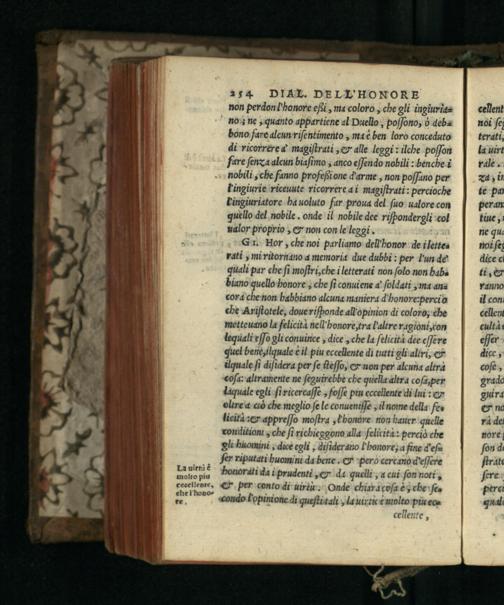 254 DIAL. DELL'HONORE
non perdon l'honore eßi, ma coloro, che gli ingiuria-
no: ne, quanto appartiene al Duello, possono, ò deb-
bono fare alcun risentimento, ma è ben loro conceduto
di ricorrere a' magistrati, & alle leggi: ilche posson
fare senza alcun biasimo, anco essendo nobili: benche i
nobili, che fanno profeßione d'arme, non possano per
l'ingiurie riceuute ricorrere a i magistrati: percioche
l'ingiuriatore ha uoluto far proua del suo ualore con
quello del nobile. onde il nobile dee rispondergli col
ualor proprio, & non con le leggi.
GI. Hor, che noi parliamo dell'honor de i lette-
rati, mi ritornano a memoria due dubbi: per l'un de'
quali par che si mostri, che i letterati non solo non hab-
biano quello honore, che si conuiene a' soldati, ma an-
cora che non habbiano alcuna maniera d'honore: percio
che Aristotele, doue risponde all'opinion di coloro, che
metteuano la felicità nell'honore, tra l'altre ragioni, con
lequali esso gli conuince, dice, che la felicità dee essere
quel bene, ilquale è il piu eccellente di tutti gli altri, &
ilquale si disidera per se stesso, & non per alcuna altra
cosa: altramente ne seguirebbe che quella altra cosa, per
laquale egli si ricercasse, fosse piu eccellente di lui: &
oltre a ciò che meglio se le conuenisse, il nome della fe-
licità: & appresso mostra, l'honore non hauer quelle
conditioni, che si richieggono alla felicità: perciò che
gli huomini, dice egli, disiderano l'honore, a fine d'es-
ser riputati huomini da bene. & però cercano d'essere
honorati da i prudenti, & da quelli, a cui son noti,
& per conto di uirtù. Onde chiara cosa è, che se-
condo l'opinione di questi tali, la uirtù è molto piu ec-
cellente,
La uirtù è
molto piu
eccellente,
che l'hono-
re.